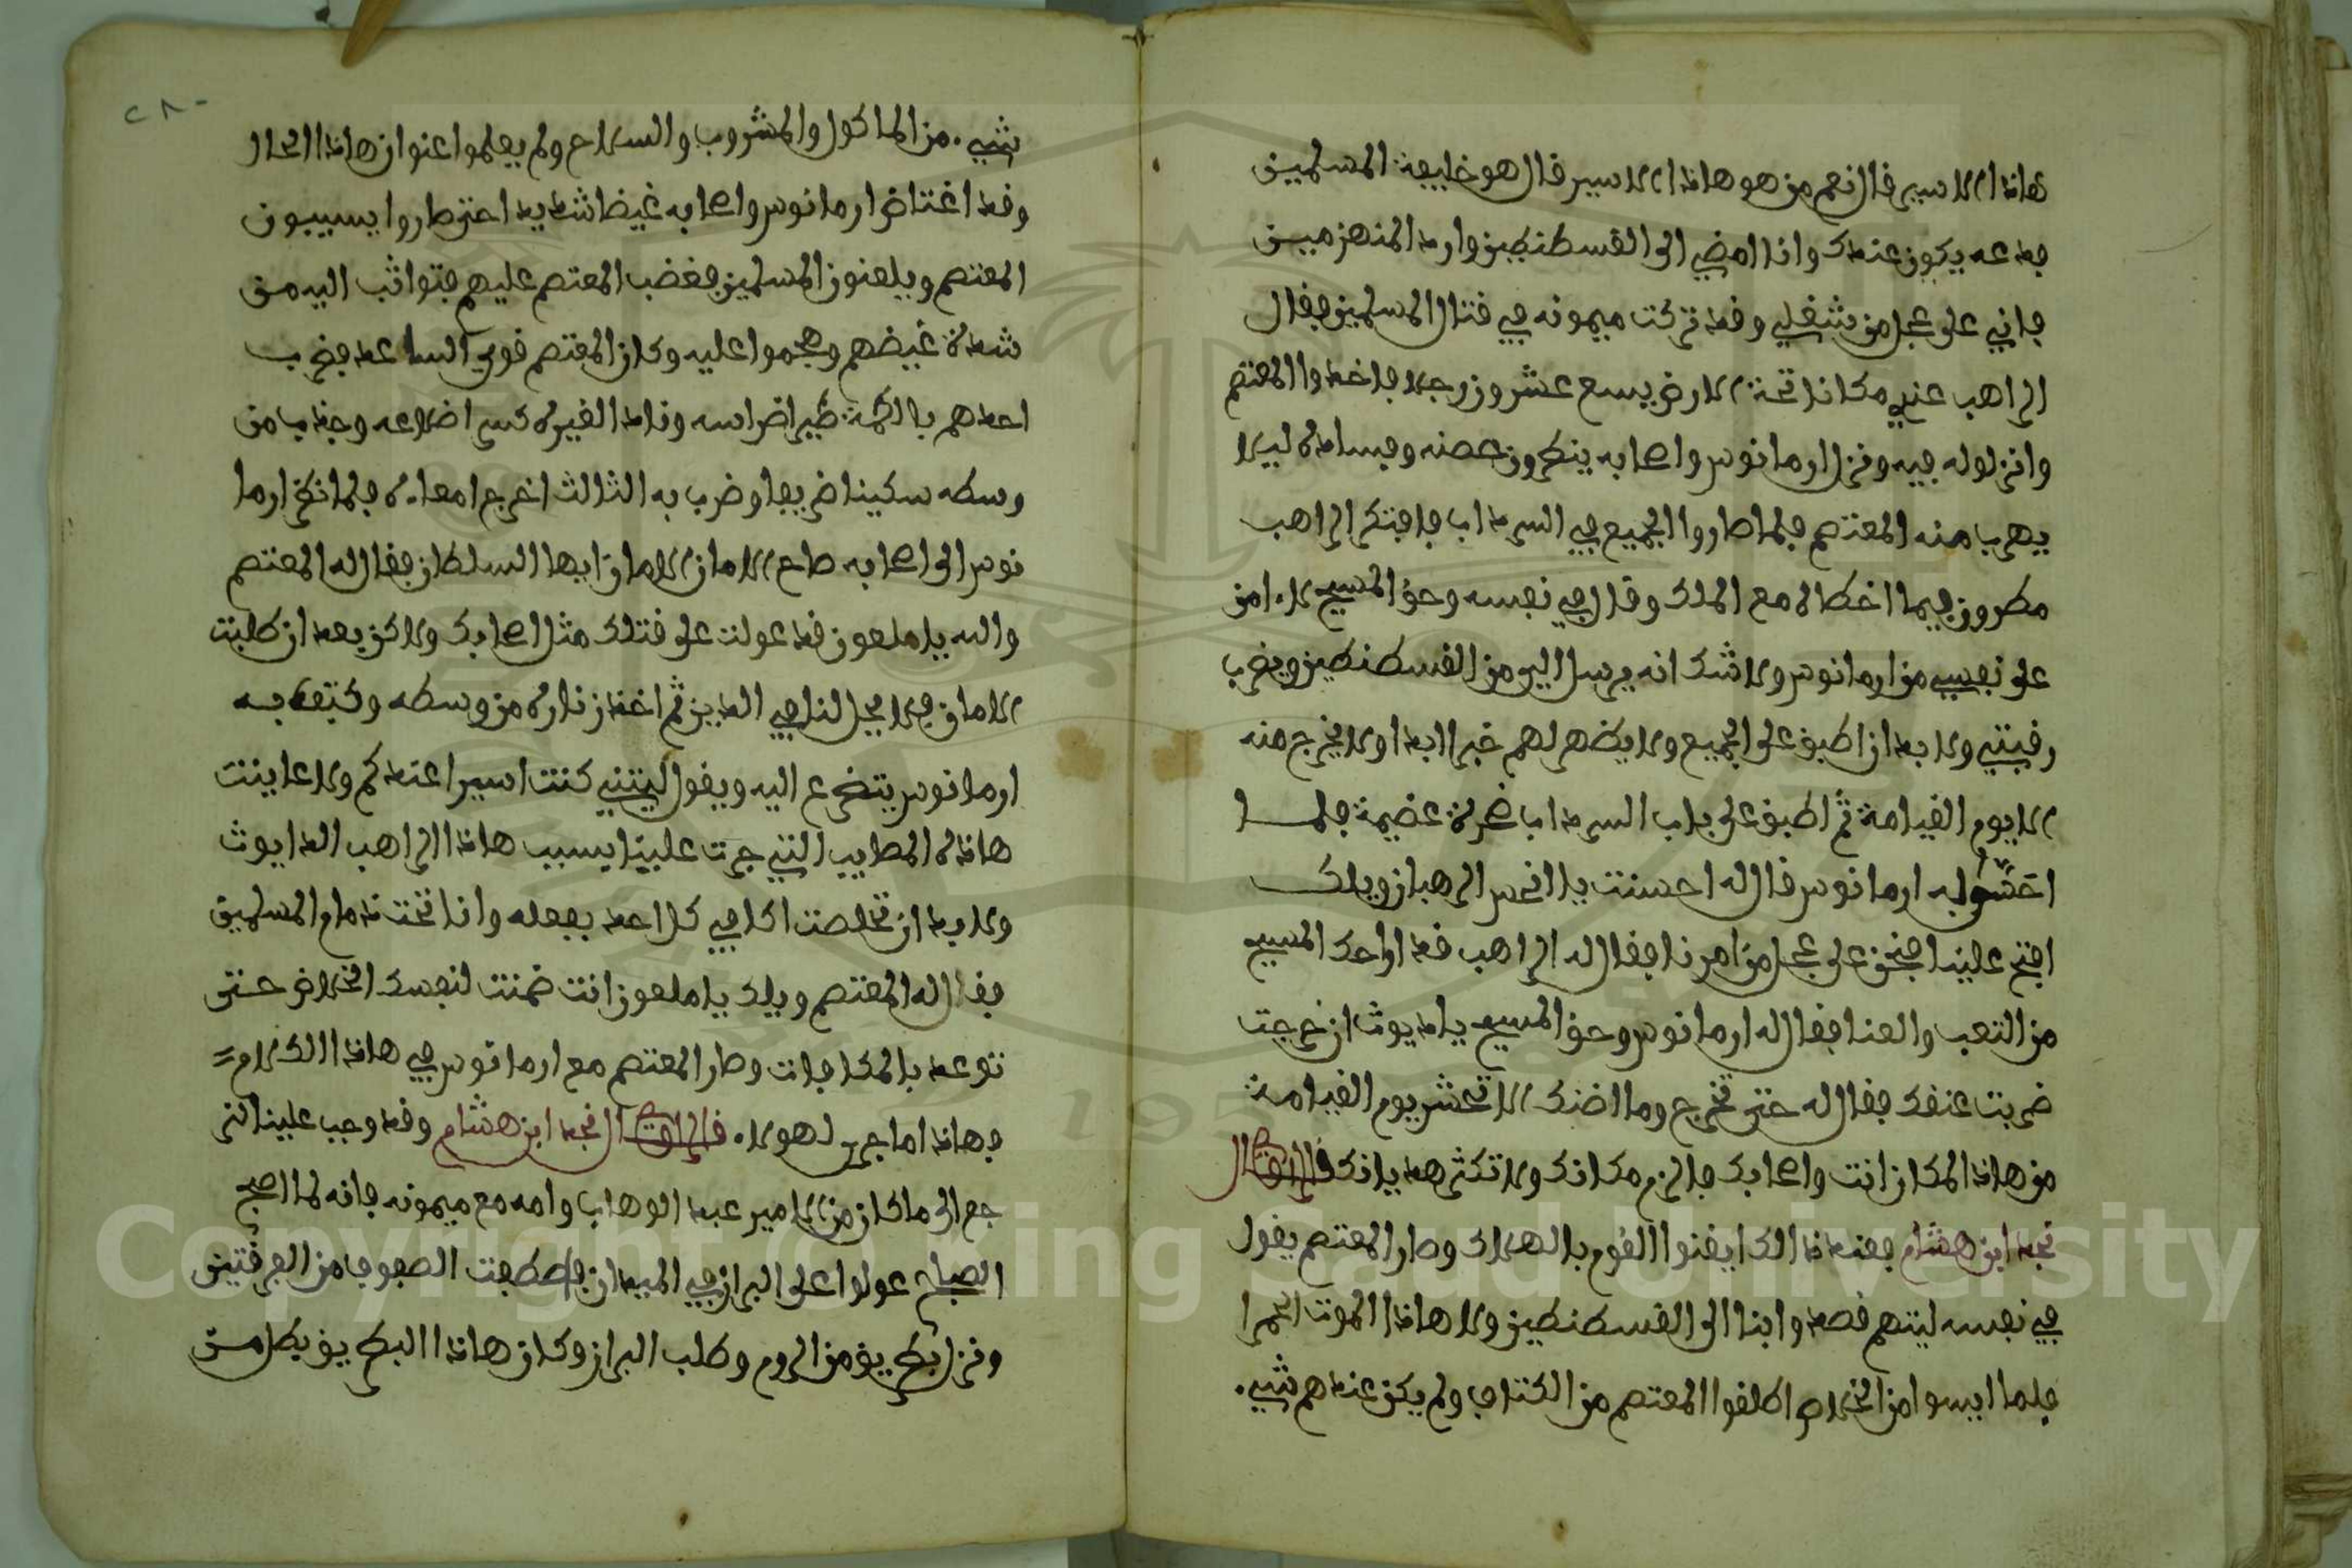 هاذا الاسير فال نعم من هو هاذا الاسير فال هو خليفة المسلمين
فدعه يكون عندك وانا امضي الى القسطنطين وارد المنهزميـن
فاني على عجل من شغلي وقد تركت ميمونه في قتال المسلمين فقال
الراهب عندي مكانا تحة الارض يسع عشرون رجلا فاخدوا المعتصم
وانزلوله فيه ونزل ارمانوس واصحابه ينظرون حصنه وفساده ليلا
يهرب منه المعتصم فلما صاروا الجميع في السرداب فافتكر الراهب
مطرون فيما اخطاه مع الملك وقال في نفسه وحق المسيح لا امن
على نفسي من ارمانوس ولا شك انه يرسل الي من القسطنطين ويضرب
رقبتي ولا بد ان اطبق على الجميع ولا يظهر لهم خبرا ابدا ولا يخرج منه
الا يوم القيامة ثم اطبق على باب السرداب صخرة عضيمة فلمــا
ارمانوس قال له احسنت يا انحس الرهبان ويلك
افتح علينا فنحن على عجل من امرنا فقال له الراهب قد اراحك المسيح
من التعب والعنا فقال له ارمانوس وحق المسيح يا ديوث ان خرجت
ضربت عنقك فقال له حتى تخرج وما اضنك الا تحشر يوم القيامة
من هاذا المكان انت واصحابك فالزم مكانك ولا تكثر هديانك قال
نجد ابن هشام فعند ذالك ايقنوا القوم بالهلاك وصار المعتصم يقول
في نفسه ليتهم قصدوا بنا الى القسطنطين ولا هاذا الموت الحمرا
فلما ايسوا من الخلاص اطلقوا المعتصم من الكتاف ولم يكن عندهم شيء
شيء من الماكول والمشروب والسلاح ولم يعلموا عنوان هاذا الحال
وقد اغتاض ارمانوس واصحابه غيضا شديدا حتى صاروا يسيبون
المعتصم ويلعنون المسلمين فغضب المعتصم عليهم فتواثب اليه مـن
شدة غيضهم وهجموا عليه وكان المعتصم قوي الساعد فضرب
احدهم بالكمة طير اضراسه وذاد الغيره كسر اضلاعه وجذب من
وسطه سكينا ضريفا وضرب به الثالث اخرج امعاه فلما نظر ارما
نوس الى اصحابه صاح الامان الامان ايها السلطان فقال له المعتصم
والله يا ملعون قد عولت على قتلك مثل اصحابك ولاكن بعد ان طلبت
الامان فلا يحل لنا في الدين ثم اخذ زناره من وسطه وكتفه بـه
ارمانوس يتضرع اليه ويقول ليتني كنت اسيرا عندكم ولا عاينت
هاذه المصايب التي جرت علينا بسبب هاذا الراهب الديوث
ولا بد ان تخلصت اكافي كل احد بفعله وانا تحت ذمام المسلمين
فقال له المعتصم ويلك يا ملعون انت ضمنت لنفسك الخلاص حـتى
توعد بالمكافات وصار المعتصم مع ارمانوس في هاذا الكلام
فهاذا ما جرى لهولاء قال نجد ابن هشام وقد وجب علينا انر
جع الى ما كان من الامير عبد الوهاب وامه مع ميمونه فانه لما اصبح
الصباح عولوا على البراز في الميدان فاصطفت الصفوف من الفرقتين
ونزل بطريق من الروم وطلب البراز وكان هاذا البطريق بطل مـن